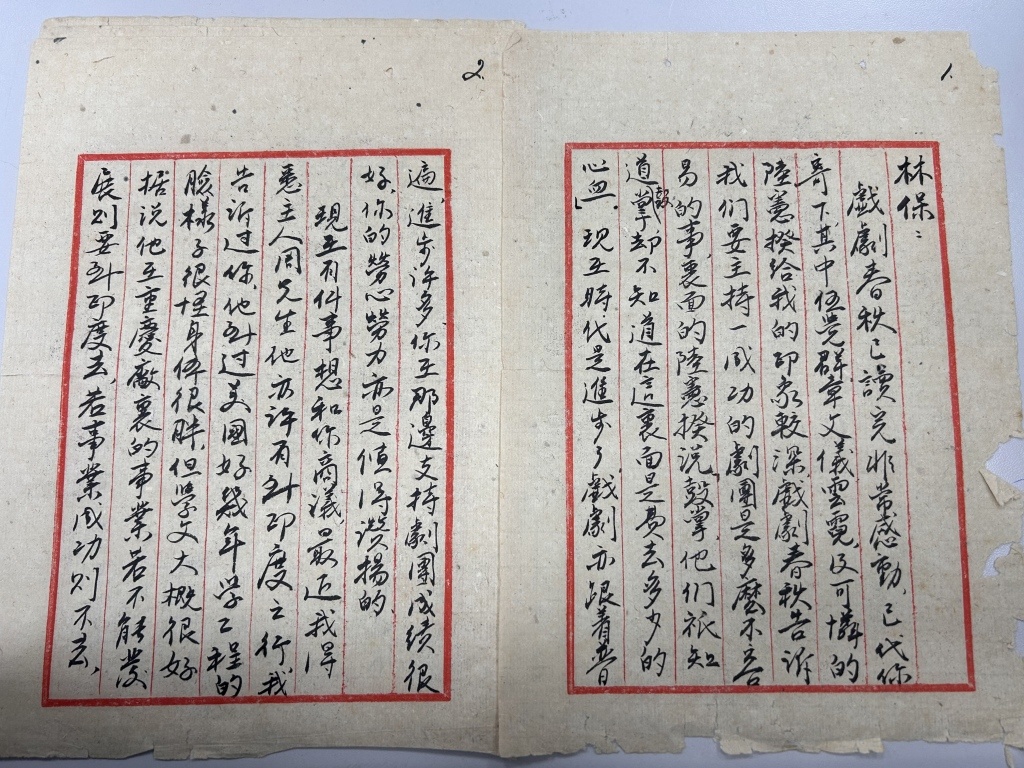 1.
林保：
戲劇春秋已讀完非常感動，已代你
寄下其中伍覺群章文儀雲霓，及可憐的
陸憲揆給我的印象較深戲劇春秋告訴
我们要主持一成功的劇團是多麼不容
易的事，裏面的陸憲揆说「鼓掌，他们祇知
道鼓掌却不知道在這裏面是去多少的
心血」。现在時代是進步了，戲劇亦跟着普
2.
遍，進步许多，你在那邊支持劇團成績很
好，你的勞心勞力亦是值得讚揚的
现在有件事想和你商議，最近我得
悉主人周先生他亦许有到印度之行，我
告訴过你，他到过美國好幾年学工程的
臉樣子很怪身体很胖，但學文大概很好
据说他在重慶裏的事業若不能發
展则要到印度去，若事業成功则不去，